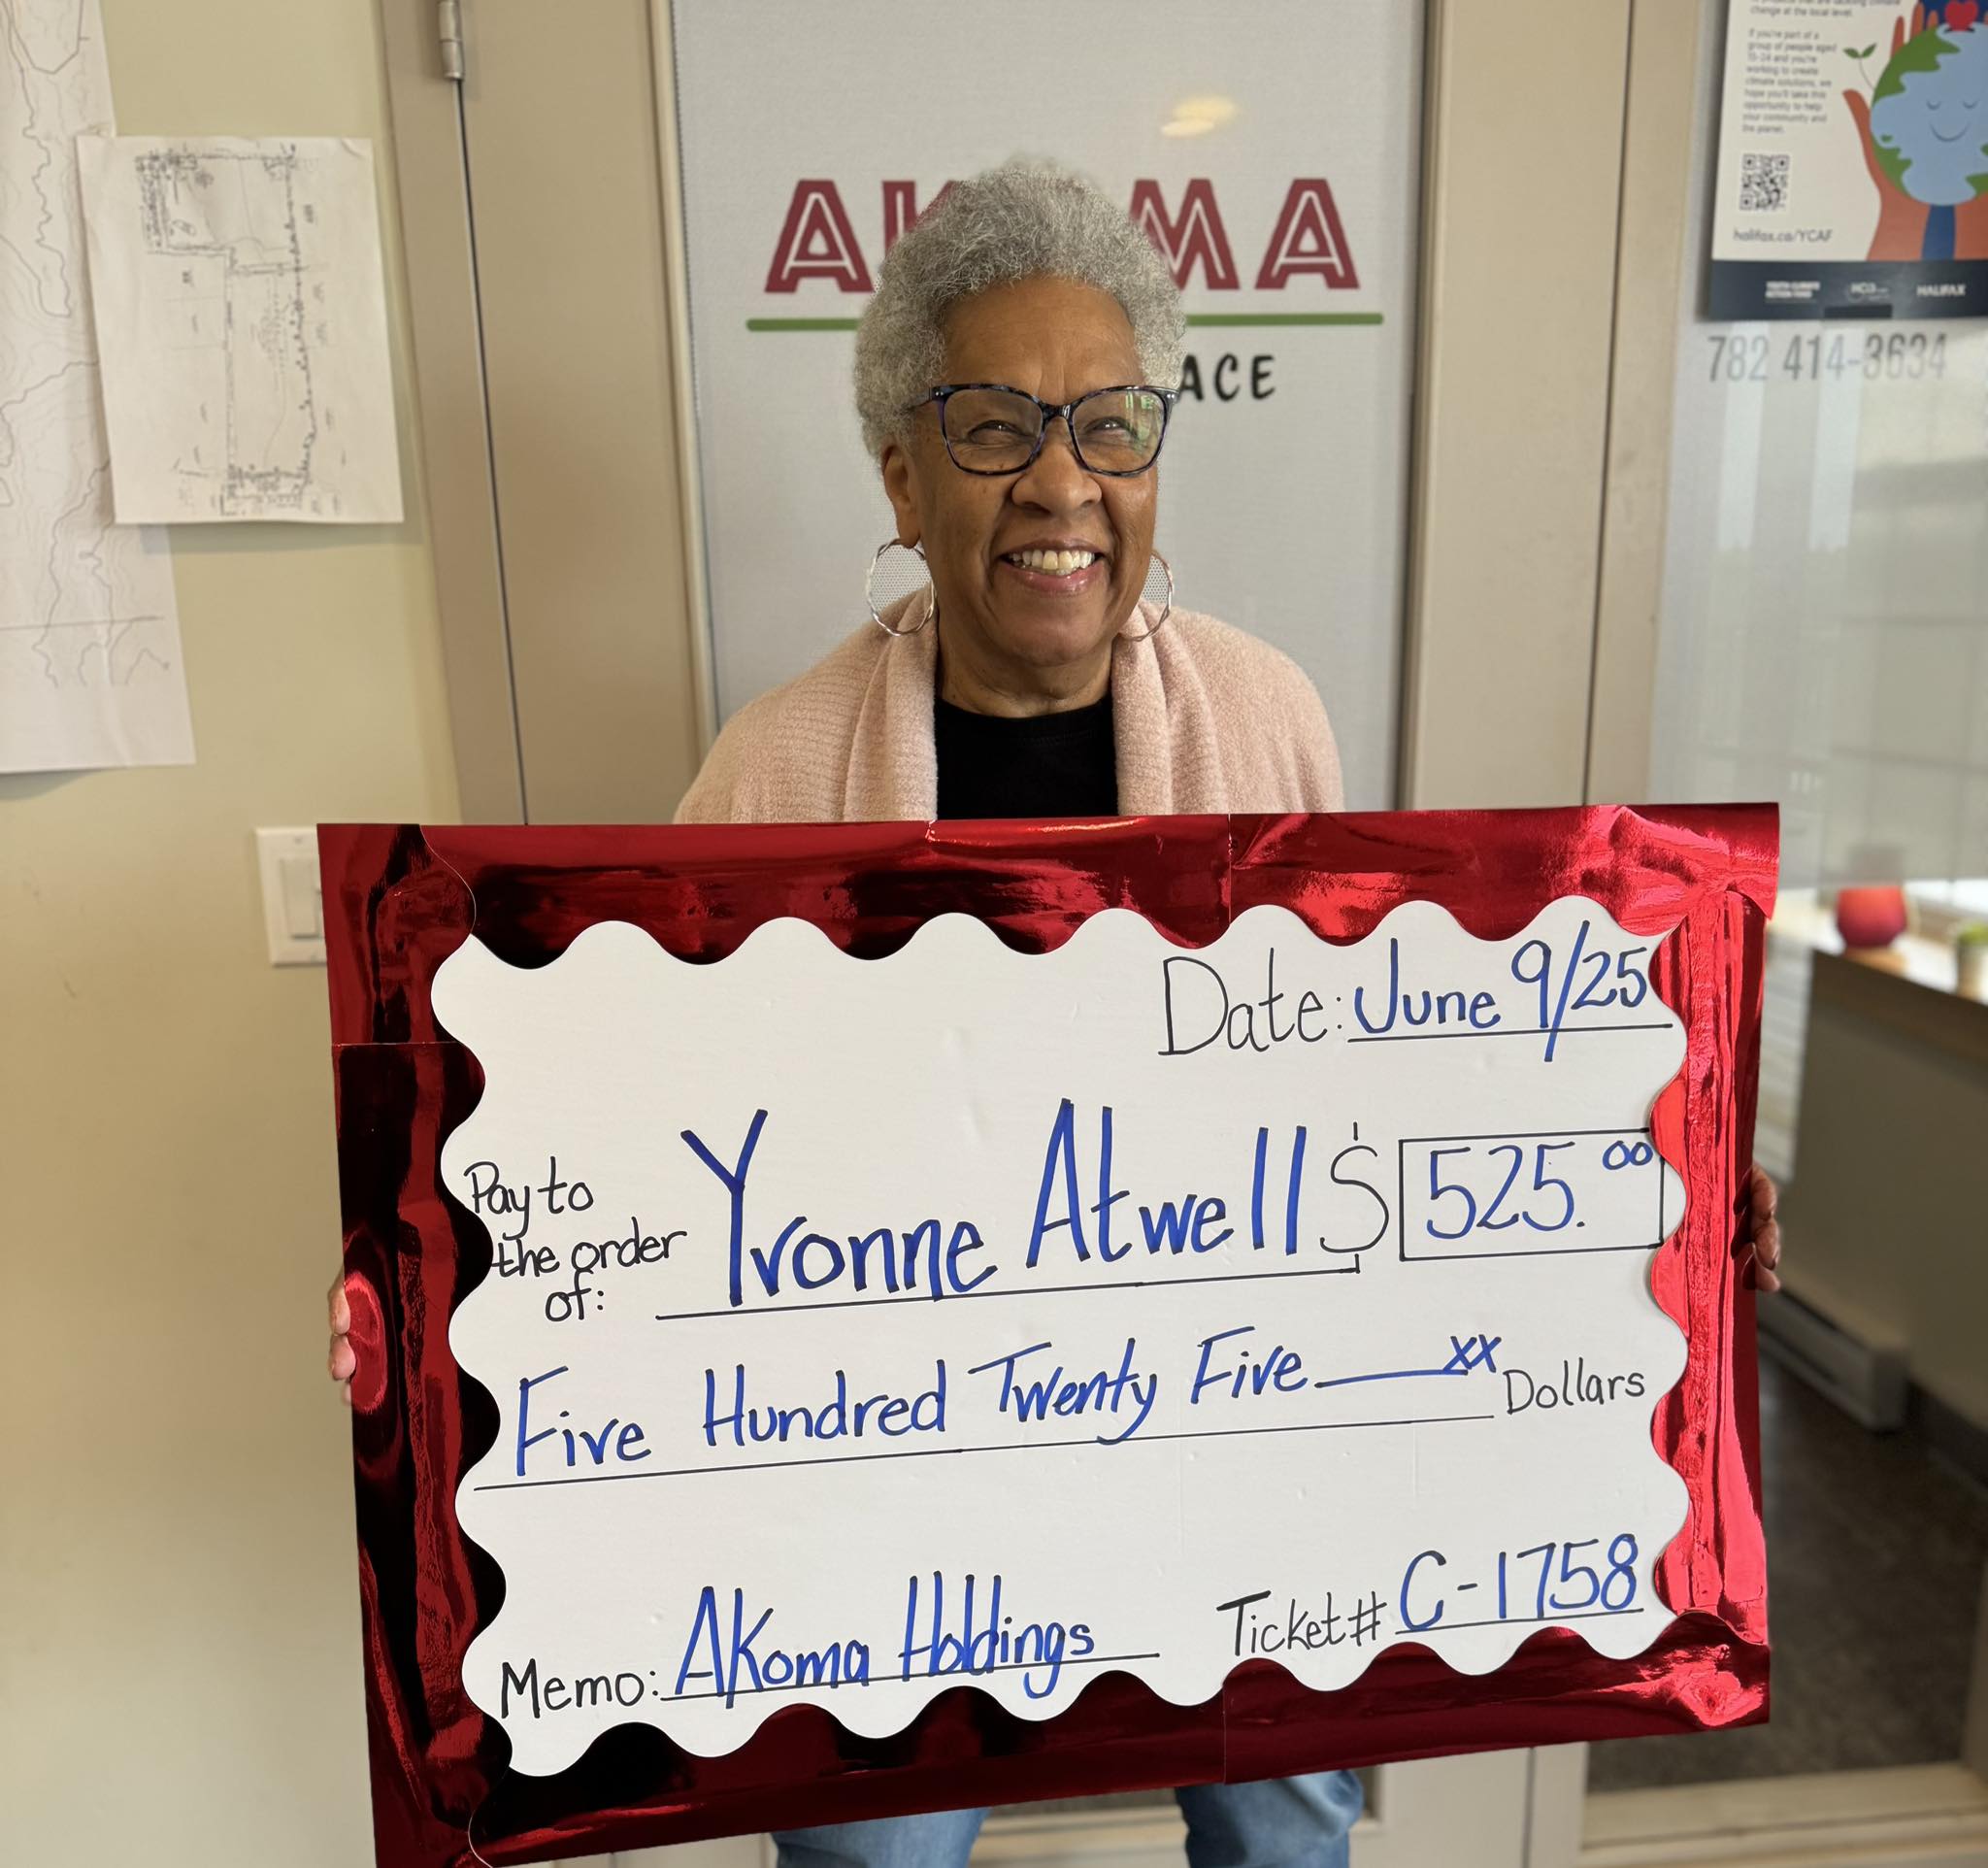 AK MA
ACE
change at the local level.
If you're part of a
group of people aged
15-24 and you're
working to create
climate solutions, we
hope you'll take this
opportunity to help
your community and
the planet.
halifax.ca/YCAF
HALIFAX
782 414-3634
Date: June 9/25
Pay to
the order
of: Yvonne Atwell $ 525.00
Five Hundred Twenty Five xx Dollars
Memo: AKoma Holdings Ticket# C-1758